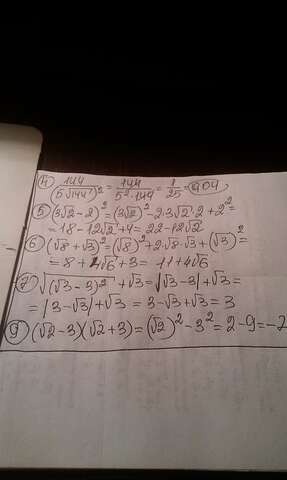 4) 144/(5√144)² = 144/(5²·144) = 1/25 = 0,04
5) (3√2-2)² = (3√2)² - 2·3√2·2 + 2² =
= 18 - 12√2 + 4 = 22 - 12√2
6) (√8 + √3)² = (√8)² + 2·√8·√3 + (√3)² =
= 8 + 4√6 + 3 = 11 + 4√6
7) √(√3 - 3)² + √3 = |√3 - 3| + √3 =
= |3 - √3| + √3 = 3 - √3 + √3 = 3
9) (√2 - 3)(√2 + 3) = (√2)² - 3² = 2 - 9 = -7